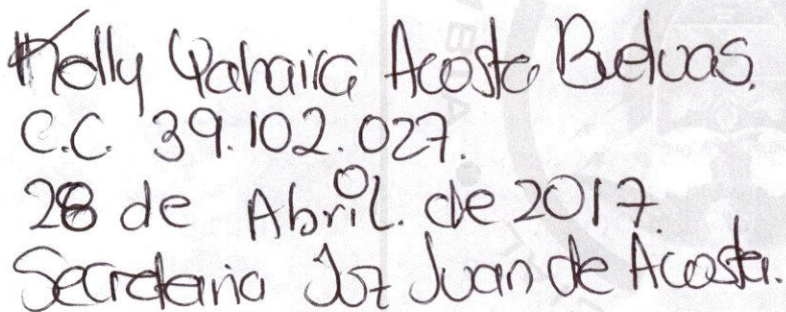 Kelly Yahaira Acosta Buelvas.
C.C. 39.102.027.
28 de Abril. de 2017.
Secretaria Juz Juan de Acosta.